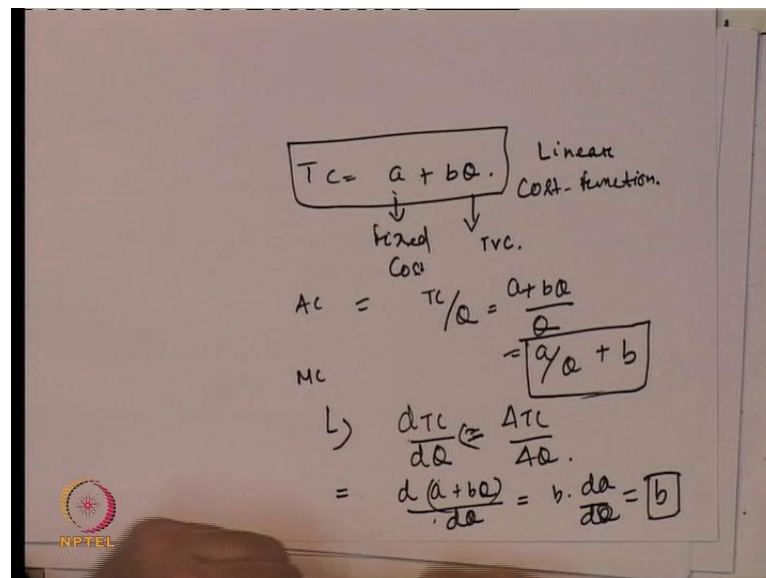 TC = a + bQ.
Linear
Cost-function.
Fixed
Cos
TVC.
AC = TC/Q = a+bQ/Q
= a/Q + b
MC
L) dTC/dQ (= ΔTC/ΔQ.
= d(a+bQ)/dQ = b. dQ/dQ = b
NPTEL